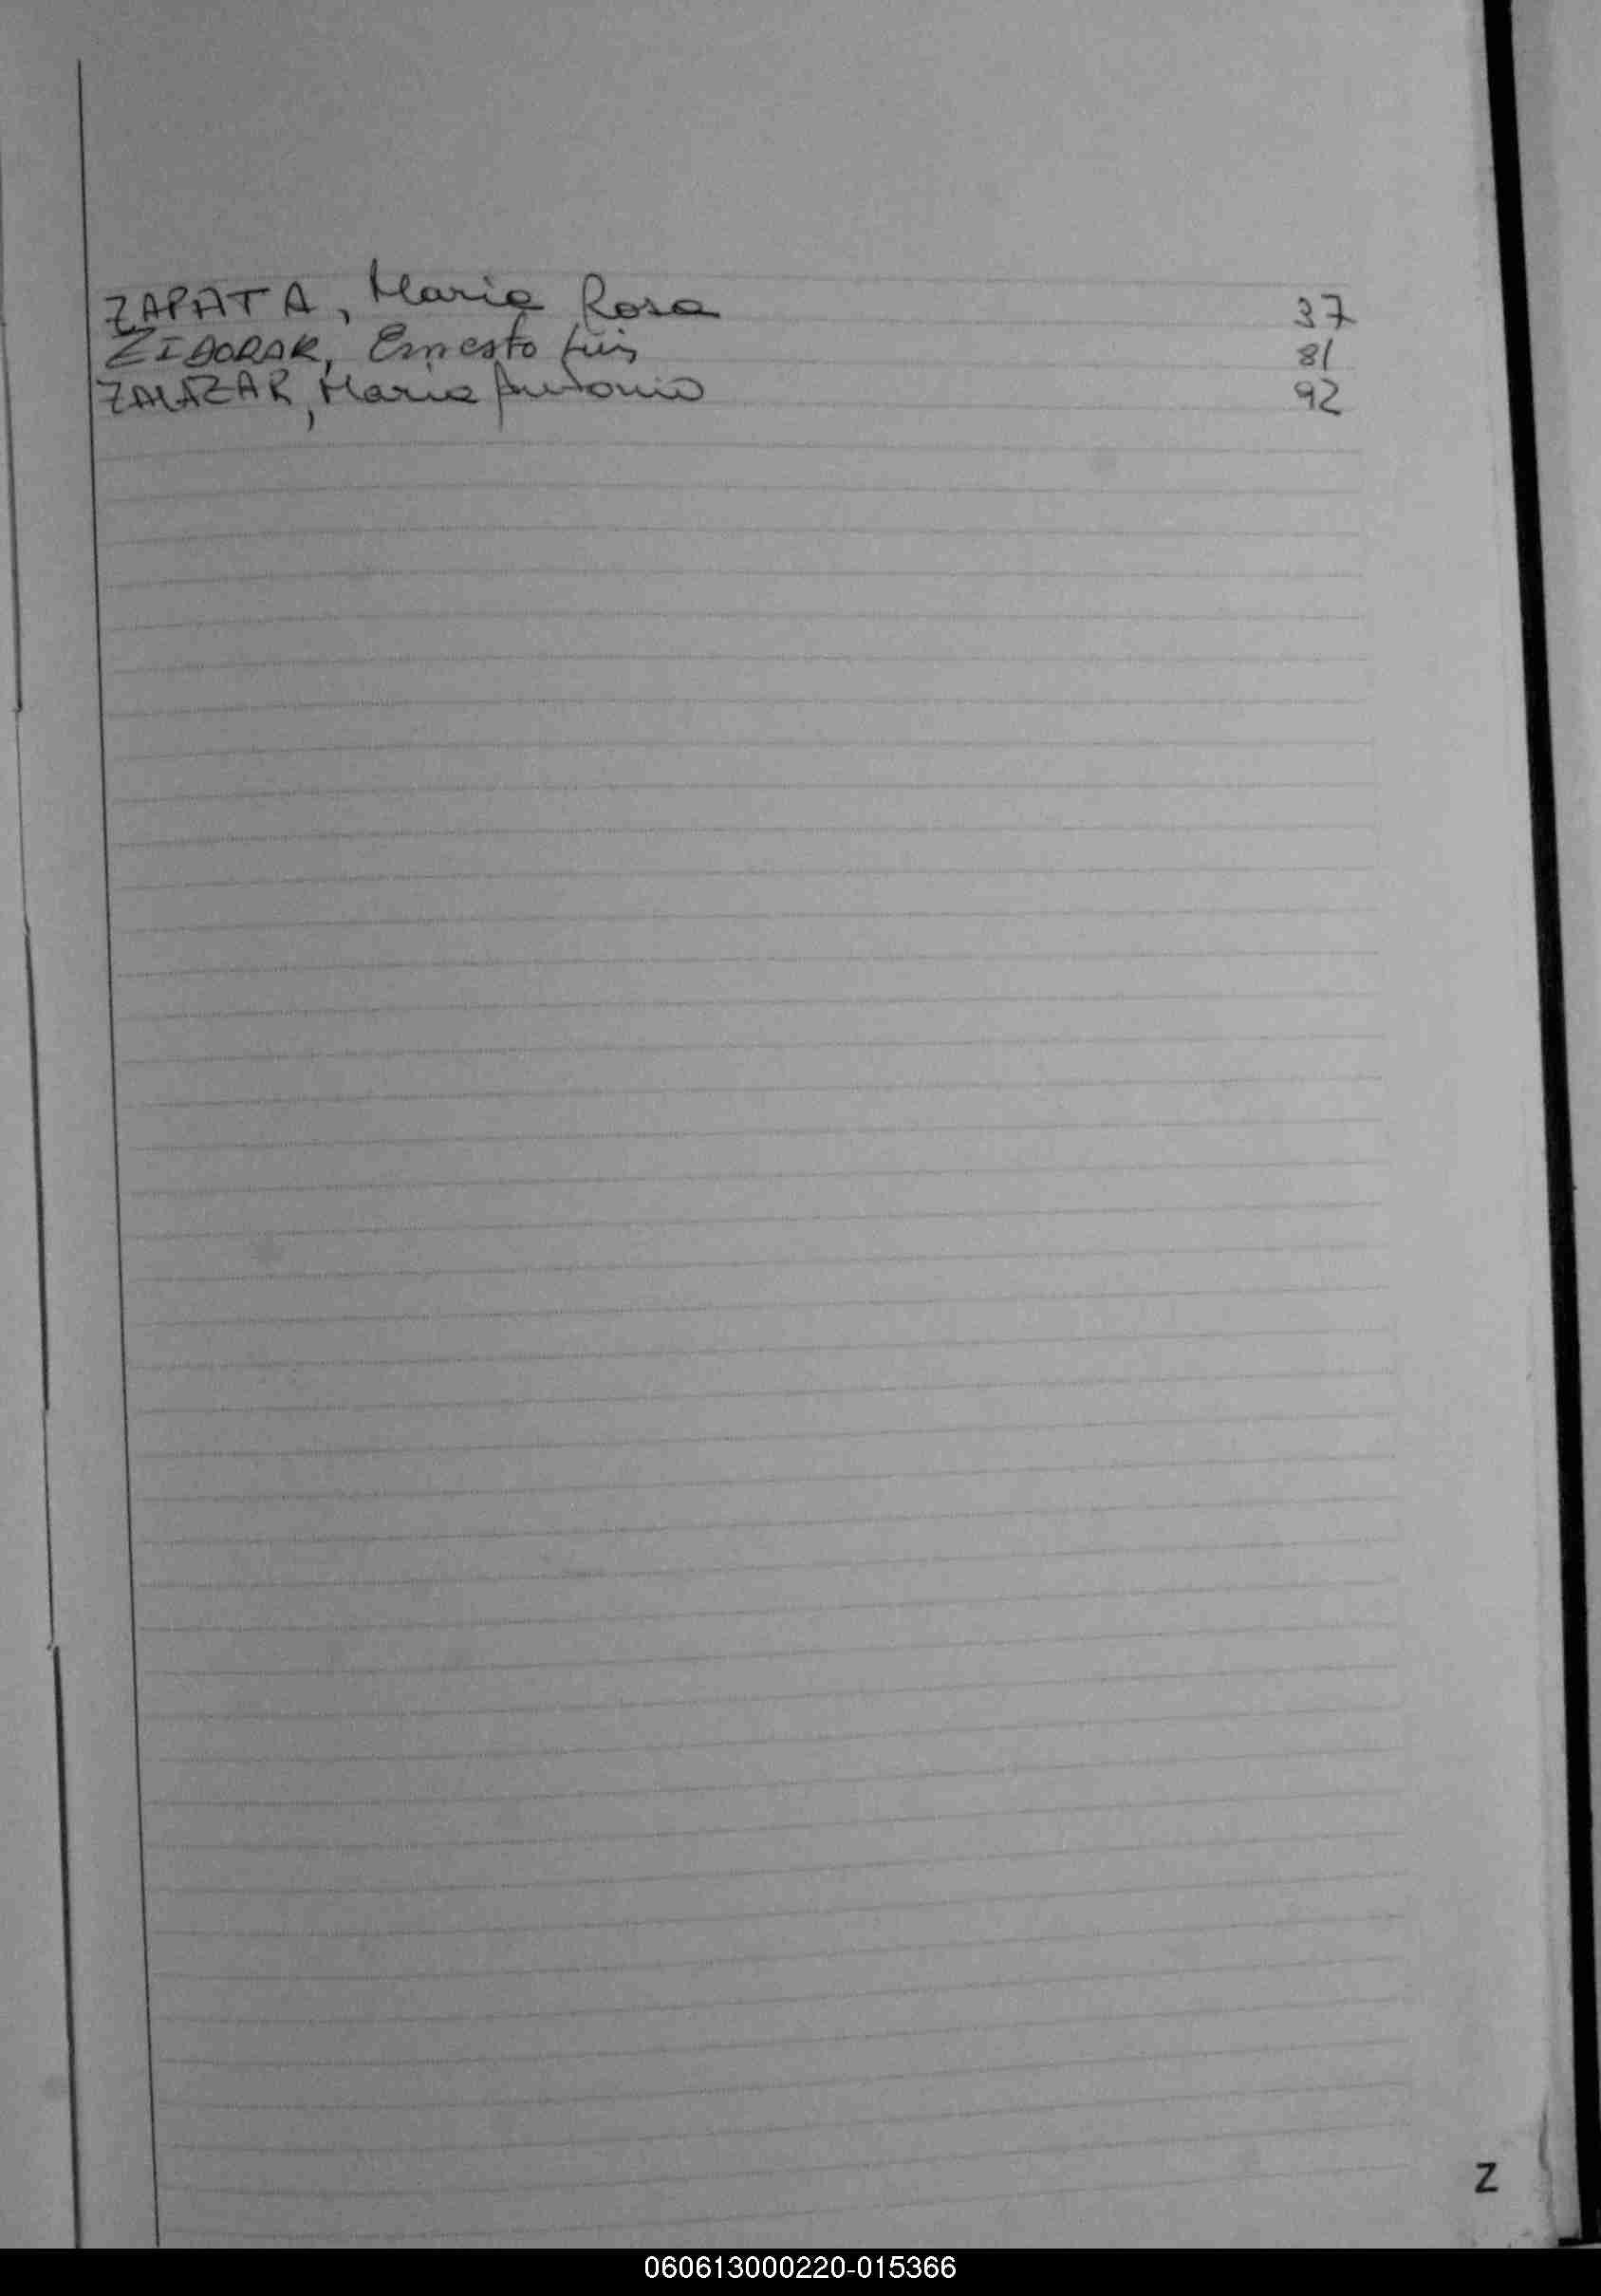 ZAPATA, Maria Rosa 37
Ernesto Luis 81
ZALAZAR, Maria Antonia 92
Z
060613000220-015366